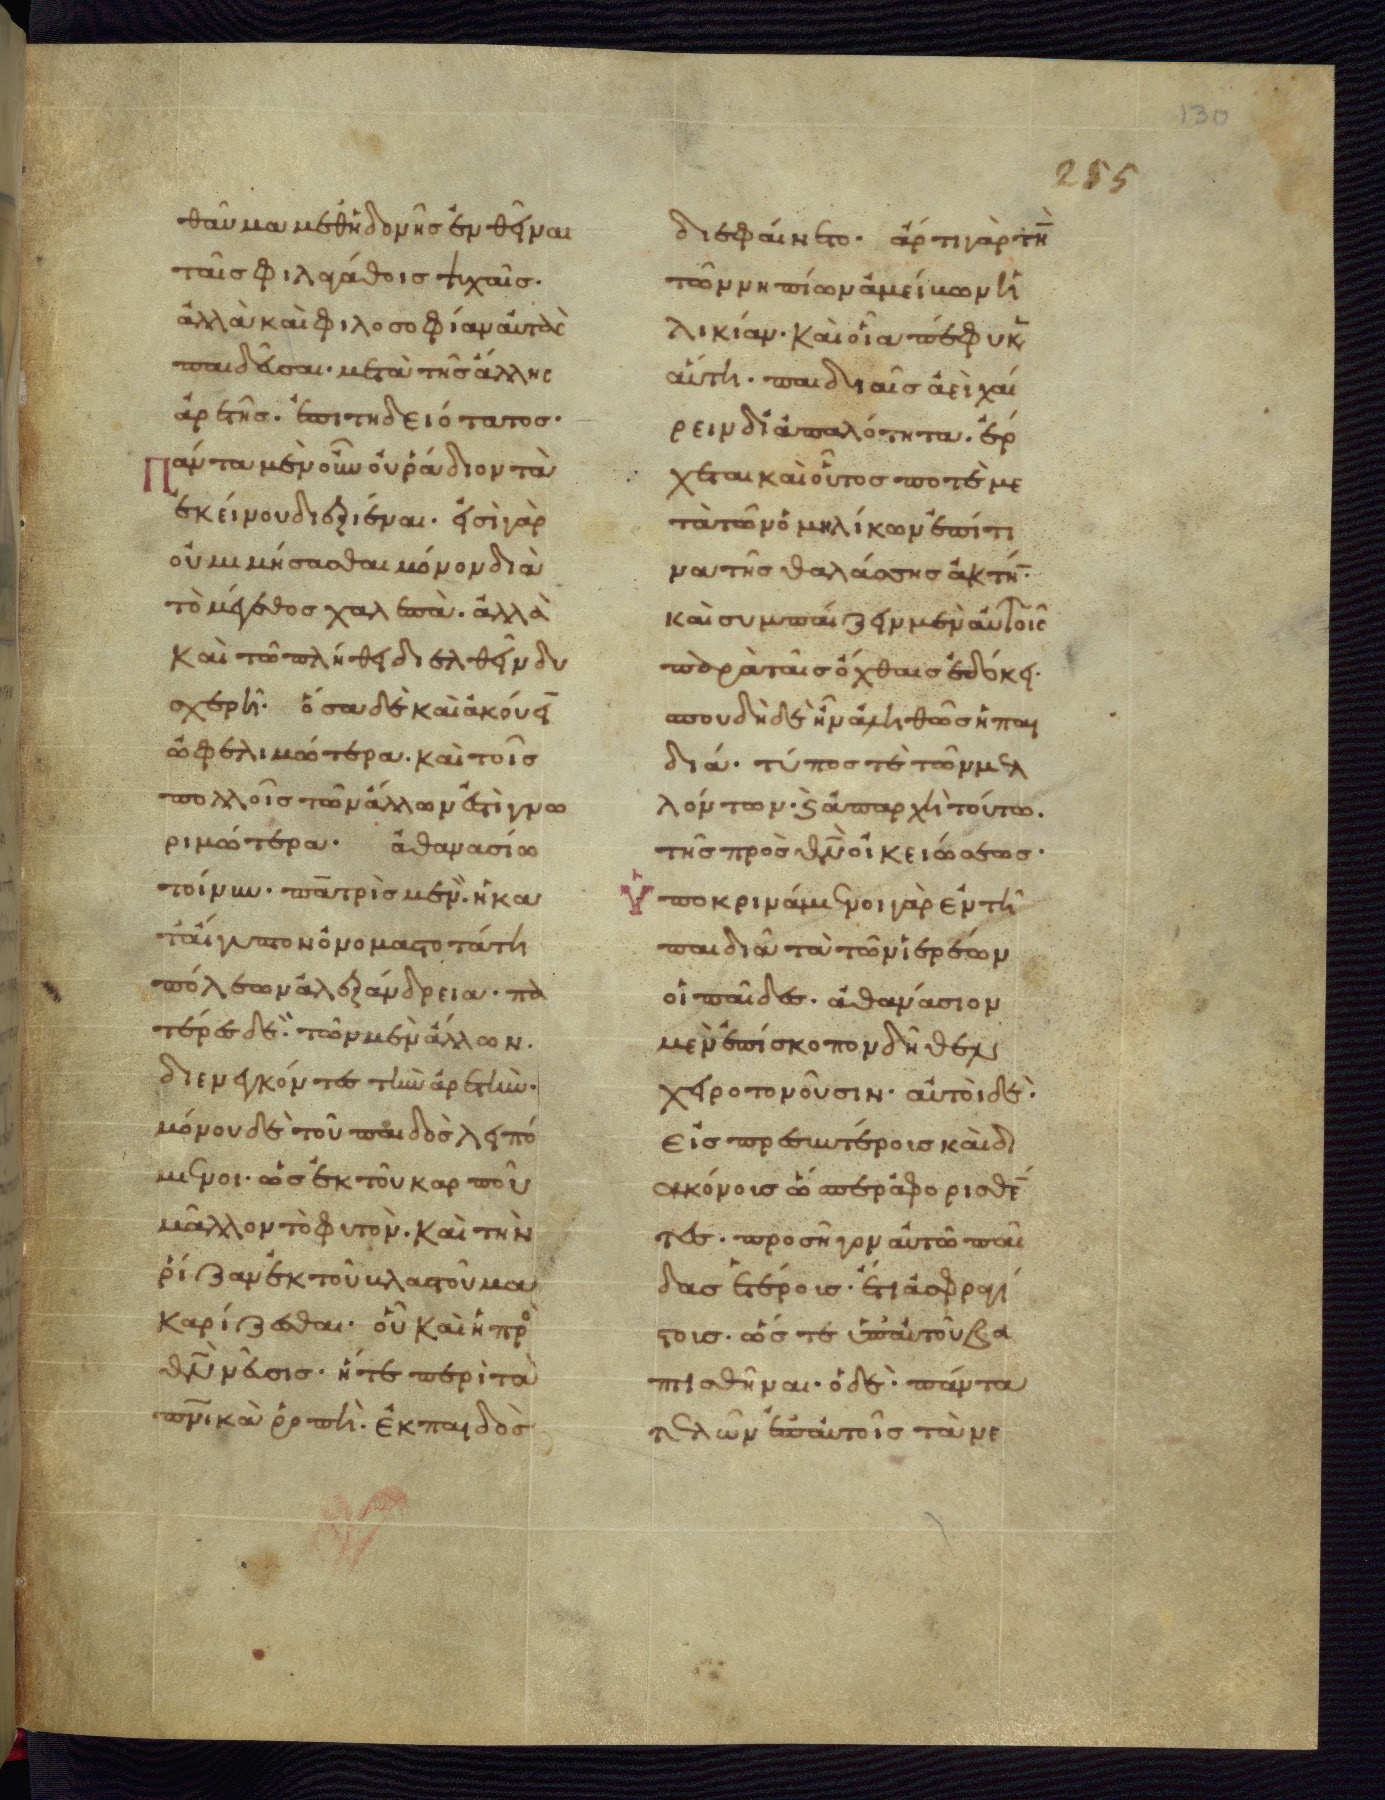 130
255
θαῦμα μεθ' ἡδονῆς ἐνθεῖναι
ταῖς φιλαγάθοις ψυχαῖς·
ἀλλὰ καὶ φιλοσοφίαν αὐτὰς
παιδεῦσαι· μετὰ τῆς ἄλλης
ἀρετῆς· ἐπιτηδειότατος·
Πάντα μὲν οὖν οὐ ῥάδιον τὰ
ἐκείνου διεξιέναι· εἰσὶ γὰρ
οὐ μιμήσασθαι μόνον διὰ
τὸ μέγεθος χαλεπὰ· ἀλλὰ
καὶ τῶ πλήθει διελθεῖν δυ
σχερῆ· ὅσα δὲ καὶ ἀκούει
ὠφελιμώτερα· καὶ τοῖς
πολλοῖς τῶν ἄλλων ἐστὶ γνω
ριμώτερα· ἀθανασίω
τοίνυν· πατρὶς μὲν· ἡ κα
τ' αἴγυπτον ὀνομαστοτάτη
πόλεων ἀλεξάνδρεια· πα
τέρες δὲ· τῶν μὲν ἄλλων·
διενεγκόντες τὴν ἀρετὴν·
μόνου δὲ τοῦ παιδὸς λειπό
μενοι· ὡς ἐκ τοῦ καρποῦ
μᾶλλον τὸ φυτὸν· καὶ τὴν
ῥίζαν ἐκ τοῦ βλαστοῦ μα
καρίζεσθαι· οὗ καὶ ἡ πρὸς
θν νεῦσις· ἥ τε περὶ τὰ
πνικὰ ῥοπὴ· ἐκ παιδὸς
διεφαίνετο· ἄρτι γὰρ τὴν
τῶν νηπίων ἀμείβων ἡ
λικίαν· καὶ οἷα πέφυκεν
αὕτη· παιδιαῖς ἀεὶ χαί
ρειν δι' ἁπαλότητα· ἔρ
χεται καὶ οὗτος ποτὲ με
τὰ τῶν ὁμηλίκων ἐπί τι
να τῆς θαλάσσης ἀκτὴν·
καὶ συμπαίζειν μὲν αὐτοῖς
παρὰ ταῖς ὄχθαις ἐδόκει·
σπουδὴ δὲ ἦν ἀληθῶς ἡ παι
διά· τύπος τὲ τῶν μελ
λόντων· καὶ ἀπαρχὴ τούτω·
τῆς πρὸς θν οἰκειώσεως·
Ὑποκρινάμενοι γὰρ ἐν τῆ
παιδιᾶ τὰ τῶν ἱερέων
οἱ παῖδες· ἀθανάσιον
μὲν ἐπίσκοπον δῆθεν
χειροτονοῦσιν· αὐτοὶ δὲ·
εἰς πρεσβυτέροις καὶ δι
ακόνοις ᾧπερ ἀφορισθέν
τες· προσῆγον αὐτῶ παῖ
δας ἑτέροις· ἔτι ἀσφραγί
στοις· ὥς τε ὑπ' αὐτοῦ βα
πτισθῆναι· ὁ δὲ· πάντα
τελῶν ἐπ' αὐτοῖς τὰ νε